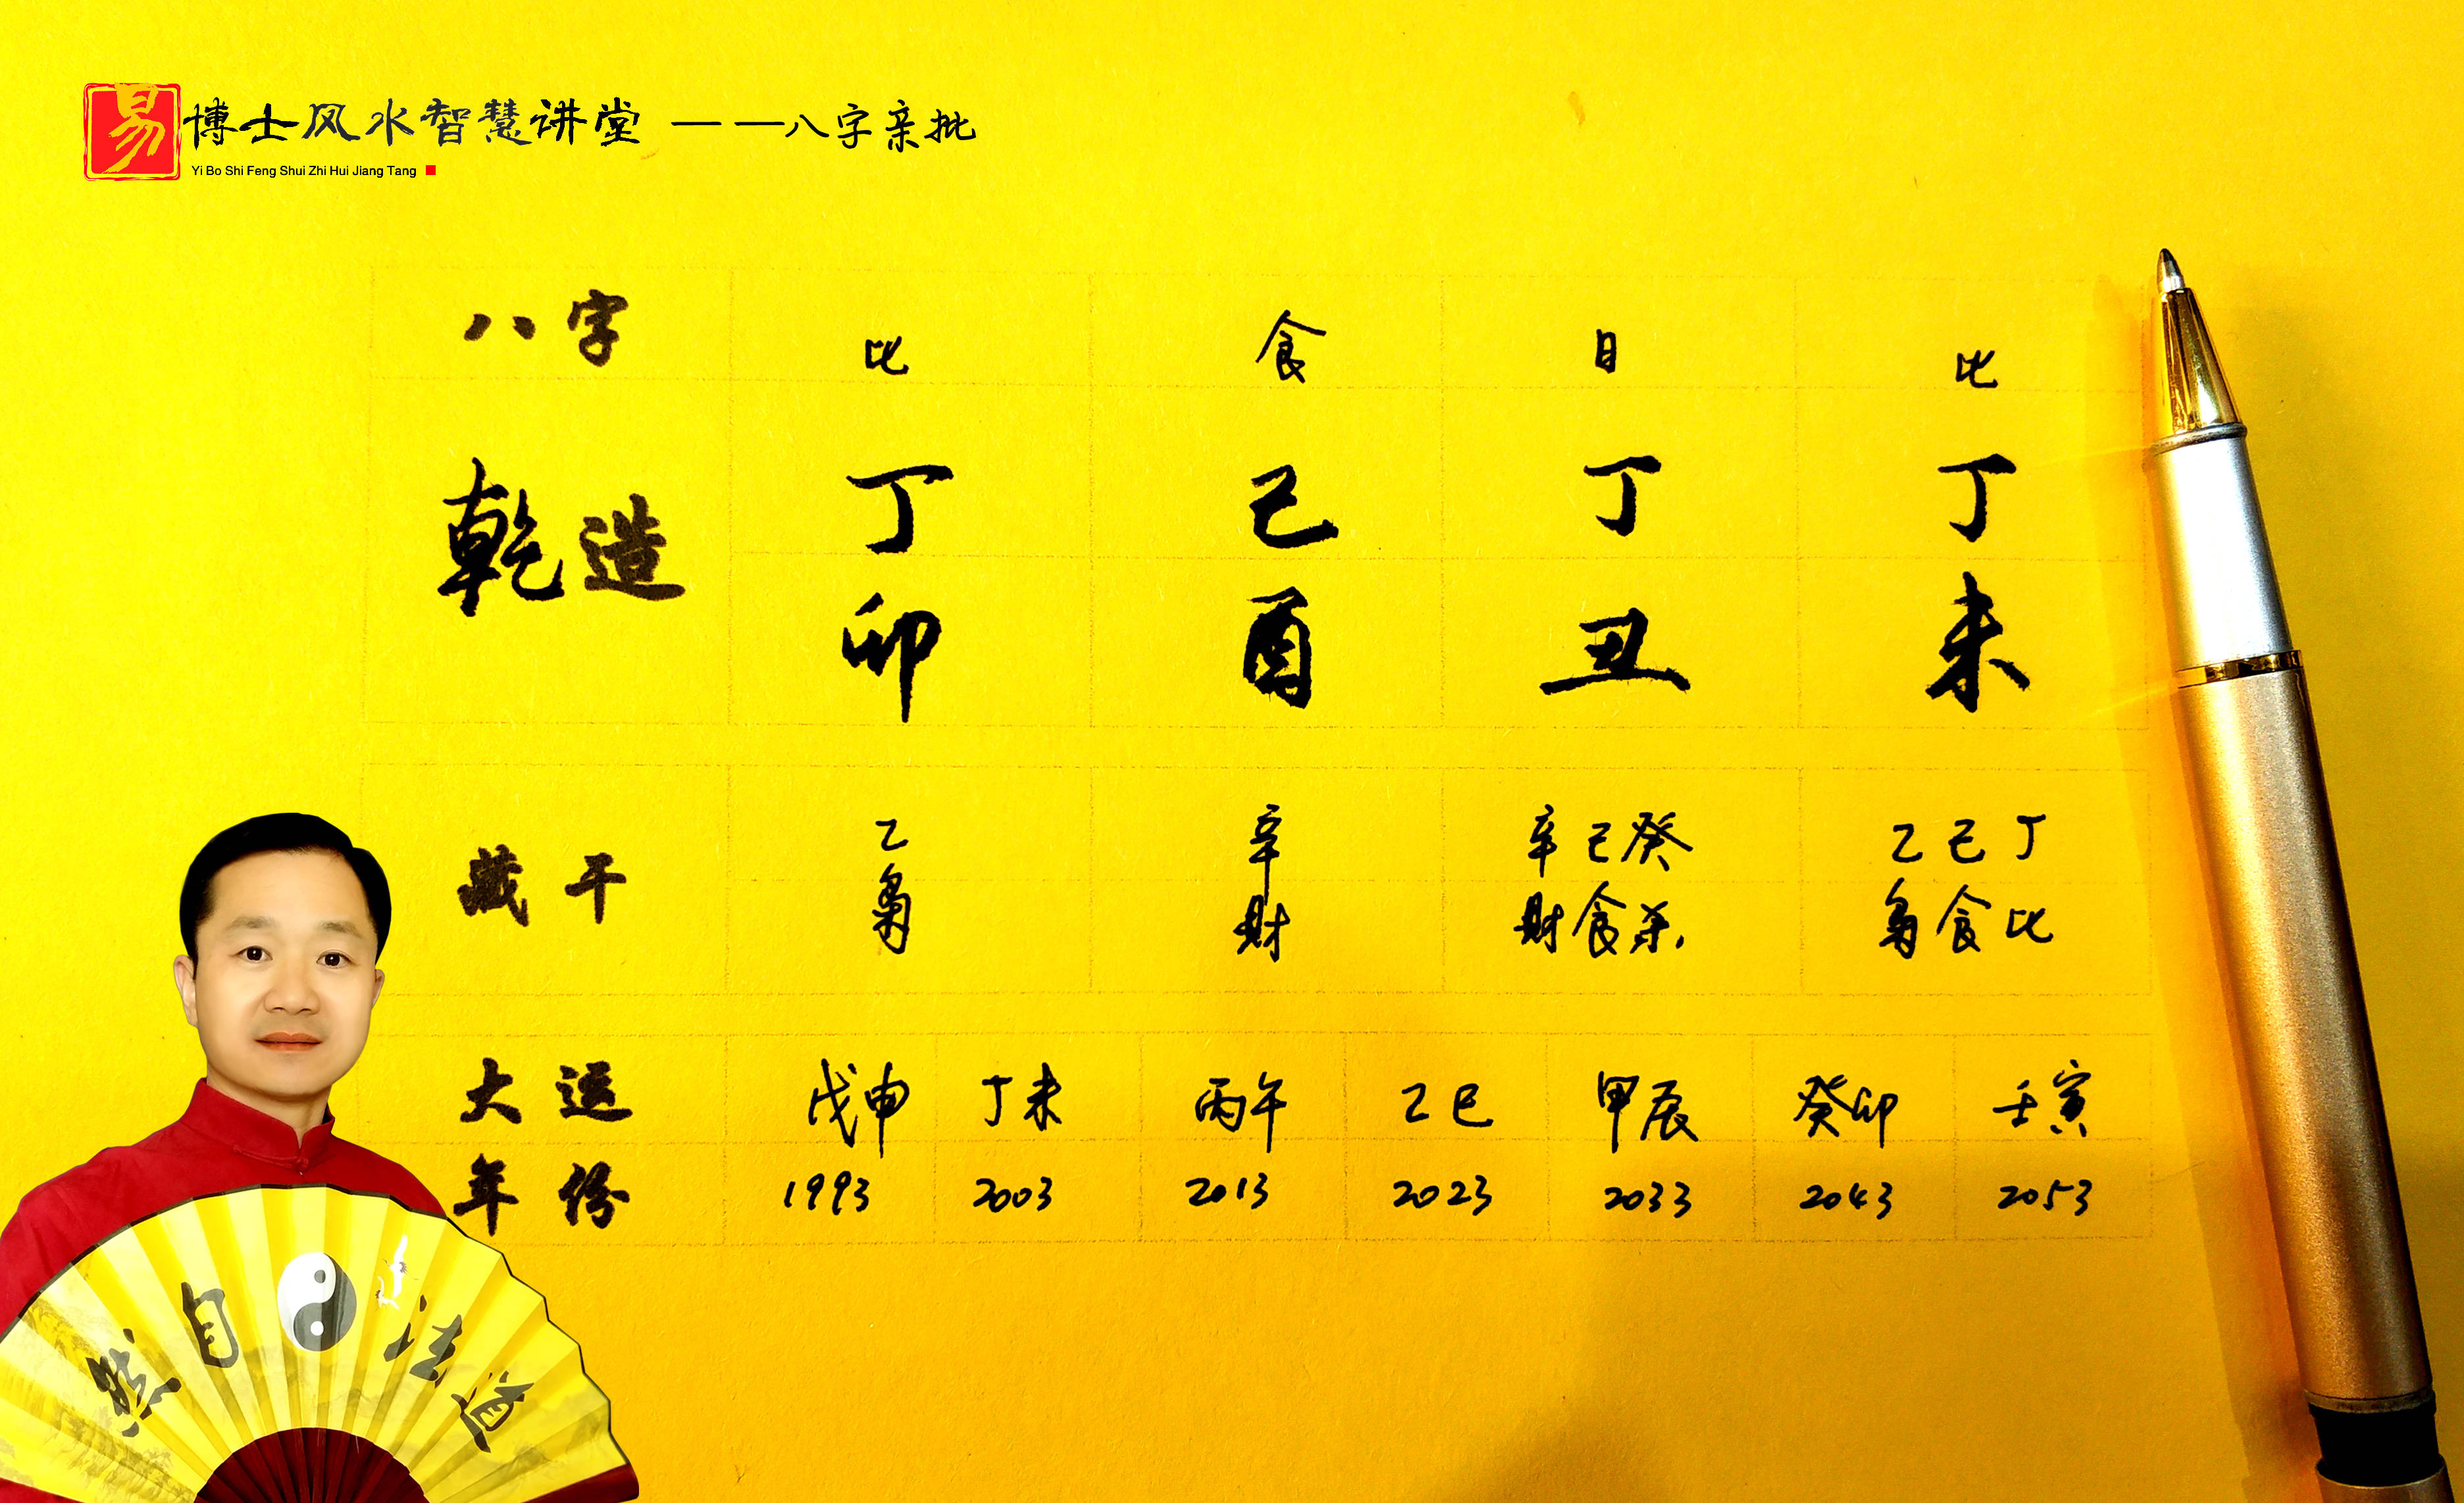 易博士风水智慧讲堂 ——八字亲批
Yi Bo Shi Feng Shui Zhi Hui Jiang Tang
八字 比 食 日 比
乾造 丁 己 丁 丁
卯 酉 丑 未
藏干 乙 辛 辛己癸 乙己丁
枭 财 财食杀 枭食比
大运 戊申 丁未 丙午 乙巳 甲辰 癸卯 壬寅
年份 1993 2003 2013 2023 2033 2043 2053
道法自然